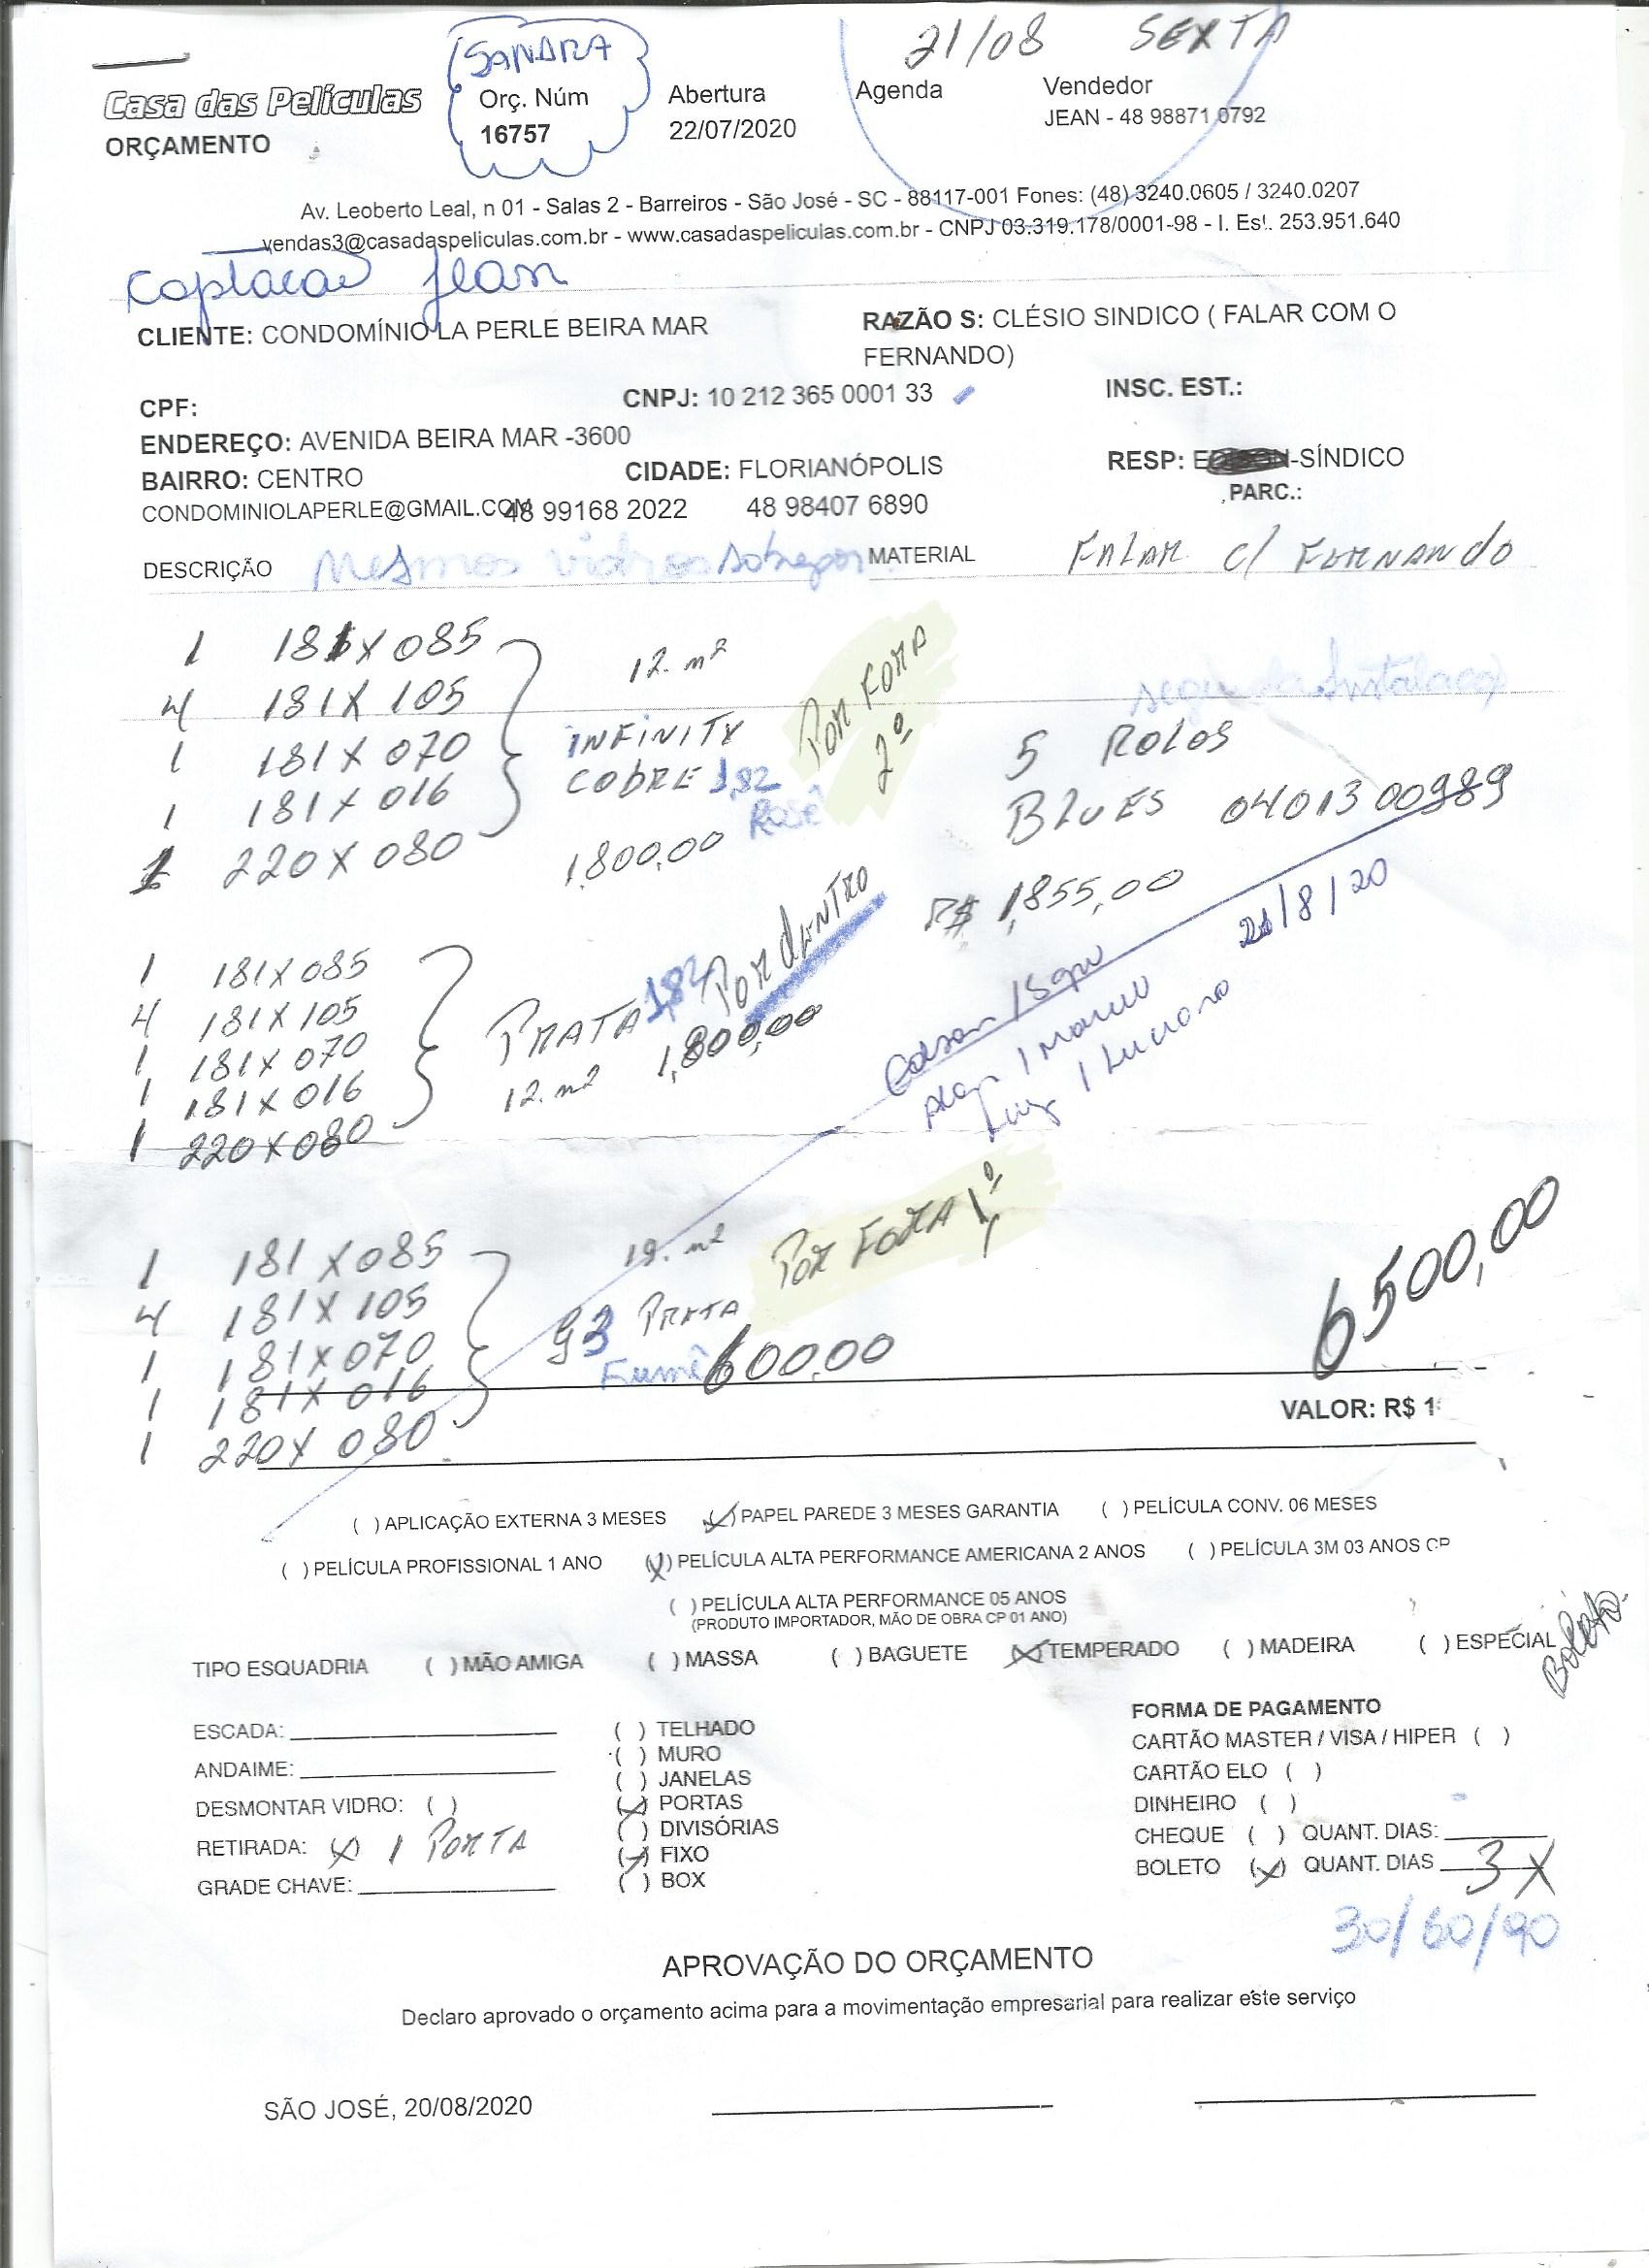 SANDRA
21/08 SEXTA
Casa das Películas
ORÇAMENTO
Orç. Núm
16757
Abertura
22/07/2020
Agenda
Vendedor
JEAN - 48 98871 0792
Av. Leoberto Leal, n 01 - Salas 2 - Barreiros - São José - SC - 88117-001 Fones: (48) 3240.0605 / 3240.0207
vendas3@casadaspeliculas.com.br - www.casadaspeliculas.com.br - CNPJ 03.319.178/0001-98 - I. Est. 253.951.640
Captacao Jean
CLIENTE: CONDOMÍNIO LA PERLE BEIRA MAR
RAZÃO S: CLÉSIO SINDICO ( FALAR COM O
FERNANDO)
CPF:
CNPJ: 10 212 365 0001 33
INSC. EST.:
ENDEREÇO: AVENIDA BEIRA MAR -3600
BAIRRO: CENTRO
CIDADE: FLORIANÓPOLIS
RESP: -SÍNDICO
PARC.:
CONDOMINIOLAPERLE@GMAIL.COM 48 99168 2022 48 98407 6890
DESCRIÇÃO Mesmos vidros sobrepor MATERIAL FALAR C/ FERNANDO
1 181 X 085
4 181 X 105
1 181 X 070
1 181 X 016
1 220 X 080
12. m²
INFINITY
COBRE 1,82
Rosê
1.800,00
POR FORA
2º
segunda Instalação
5 ROLOS
BLUES 0401300989
R$ 1,855,00
1 181 X 085
4 181 X 105
1 181 X 070
1 181 X 016
1 220 X 080
PRATA 1,82 POR dENTRO
12. m² 1,800,00
21/8/20
Edson
1 Luciano
1 181 X 085
4 181 X 105
1 181 X 070
1 181 X 016
1 220 X 080
POR FORA 1º
G3 PRATA
Fumê 600,00
6500,00
VALOR: R$ 1
( ) APLICAÇÃO EXTERNA 3 MESES (X) PAPEL PAREDE 3 MESES GARANTIA ( ) PELÍCULA CONV. 06 MESES
( ) PELÍCULA PROFISSIONAL 1 ANO (X) PELÍCULA ALTA PERFORMANCE AMERICANA 2 ANOS ( ) PELÍCULA 3M 03 ANOS CP
( ) PELÍCULA ALTA PERFORMANCE 05 ANOS
(PRODUTO IMPORTADOR, MÃO DE OBRA CP 01 ANO)
Boleto.
TIPO ESQUADRIA ( ) MÃO AMIGA ( ) MASSA ( ) BAGUETE (X) TEMPERADO ( ) MADEIRA ( ) ESPECIAL
ESCADA:
ANDAIME:
DESMONTAR VIDRO: ( )
RETIRADA: (X) 1 PORTA
GRADE CHAVE:
( ) TELHADO
( ) MURO
( ) JANELAS
(X) PORTAS
( ) DIVISÓRIAS
(X) FIXO
( ) BOX
FORMA DE PAGAMENTO
CARTÃO MASTER / VISA / HIPER ( )
CARTÃO ELO ( )
DINHEIRO ( )
CHEQUE ( ) QUANT. DIAS:
BOLETO (X) QUANT. DIAS 3 X
30/60/90
APROVAÇÃO DO ORÇAMENTO
Declaro aprovado o orçamento acima para a movimentação empresarial para realizar este serviço
SÃO JOSÉ, 20/08/2020